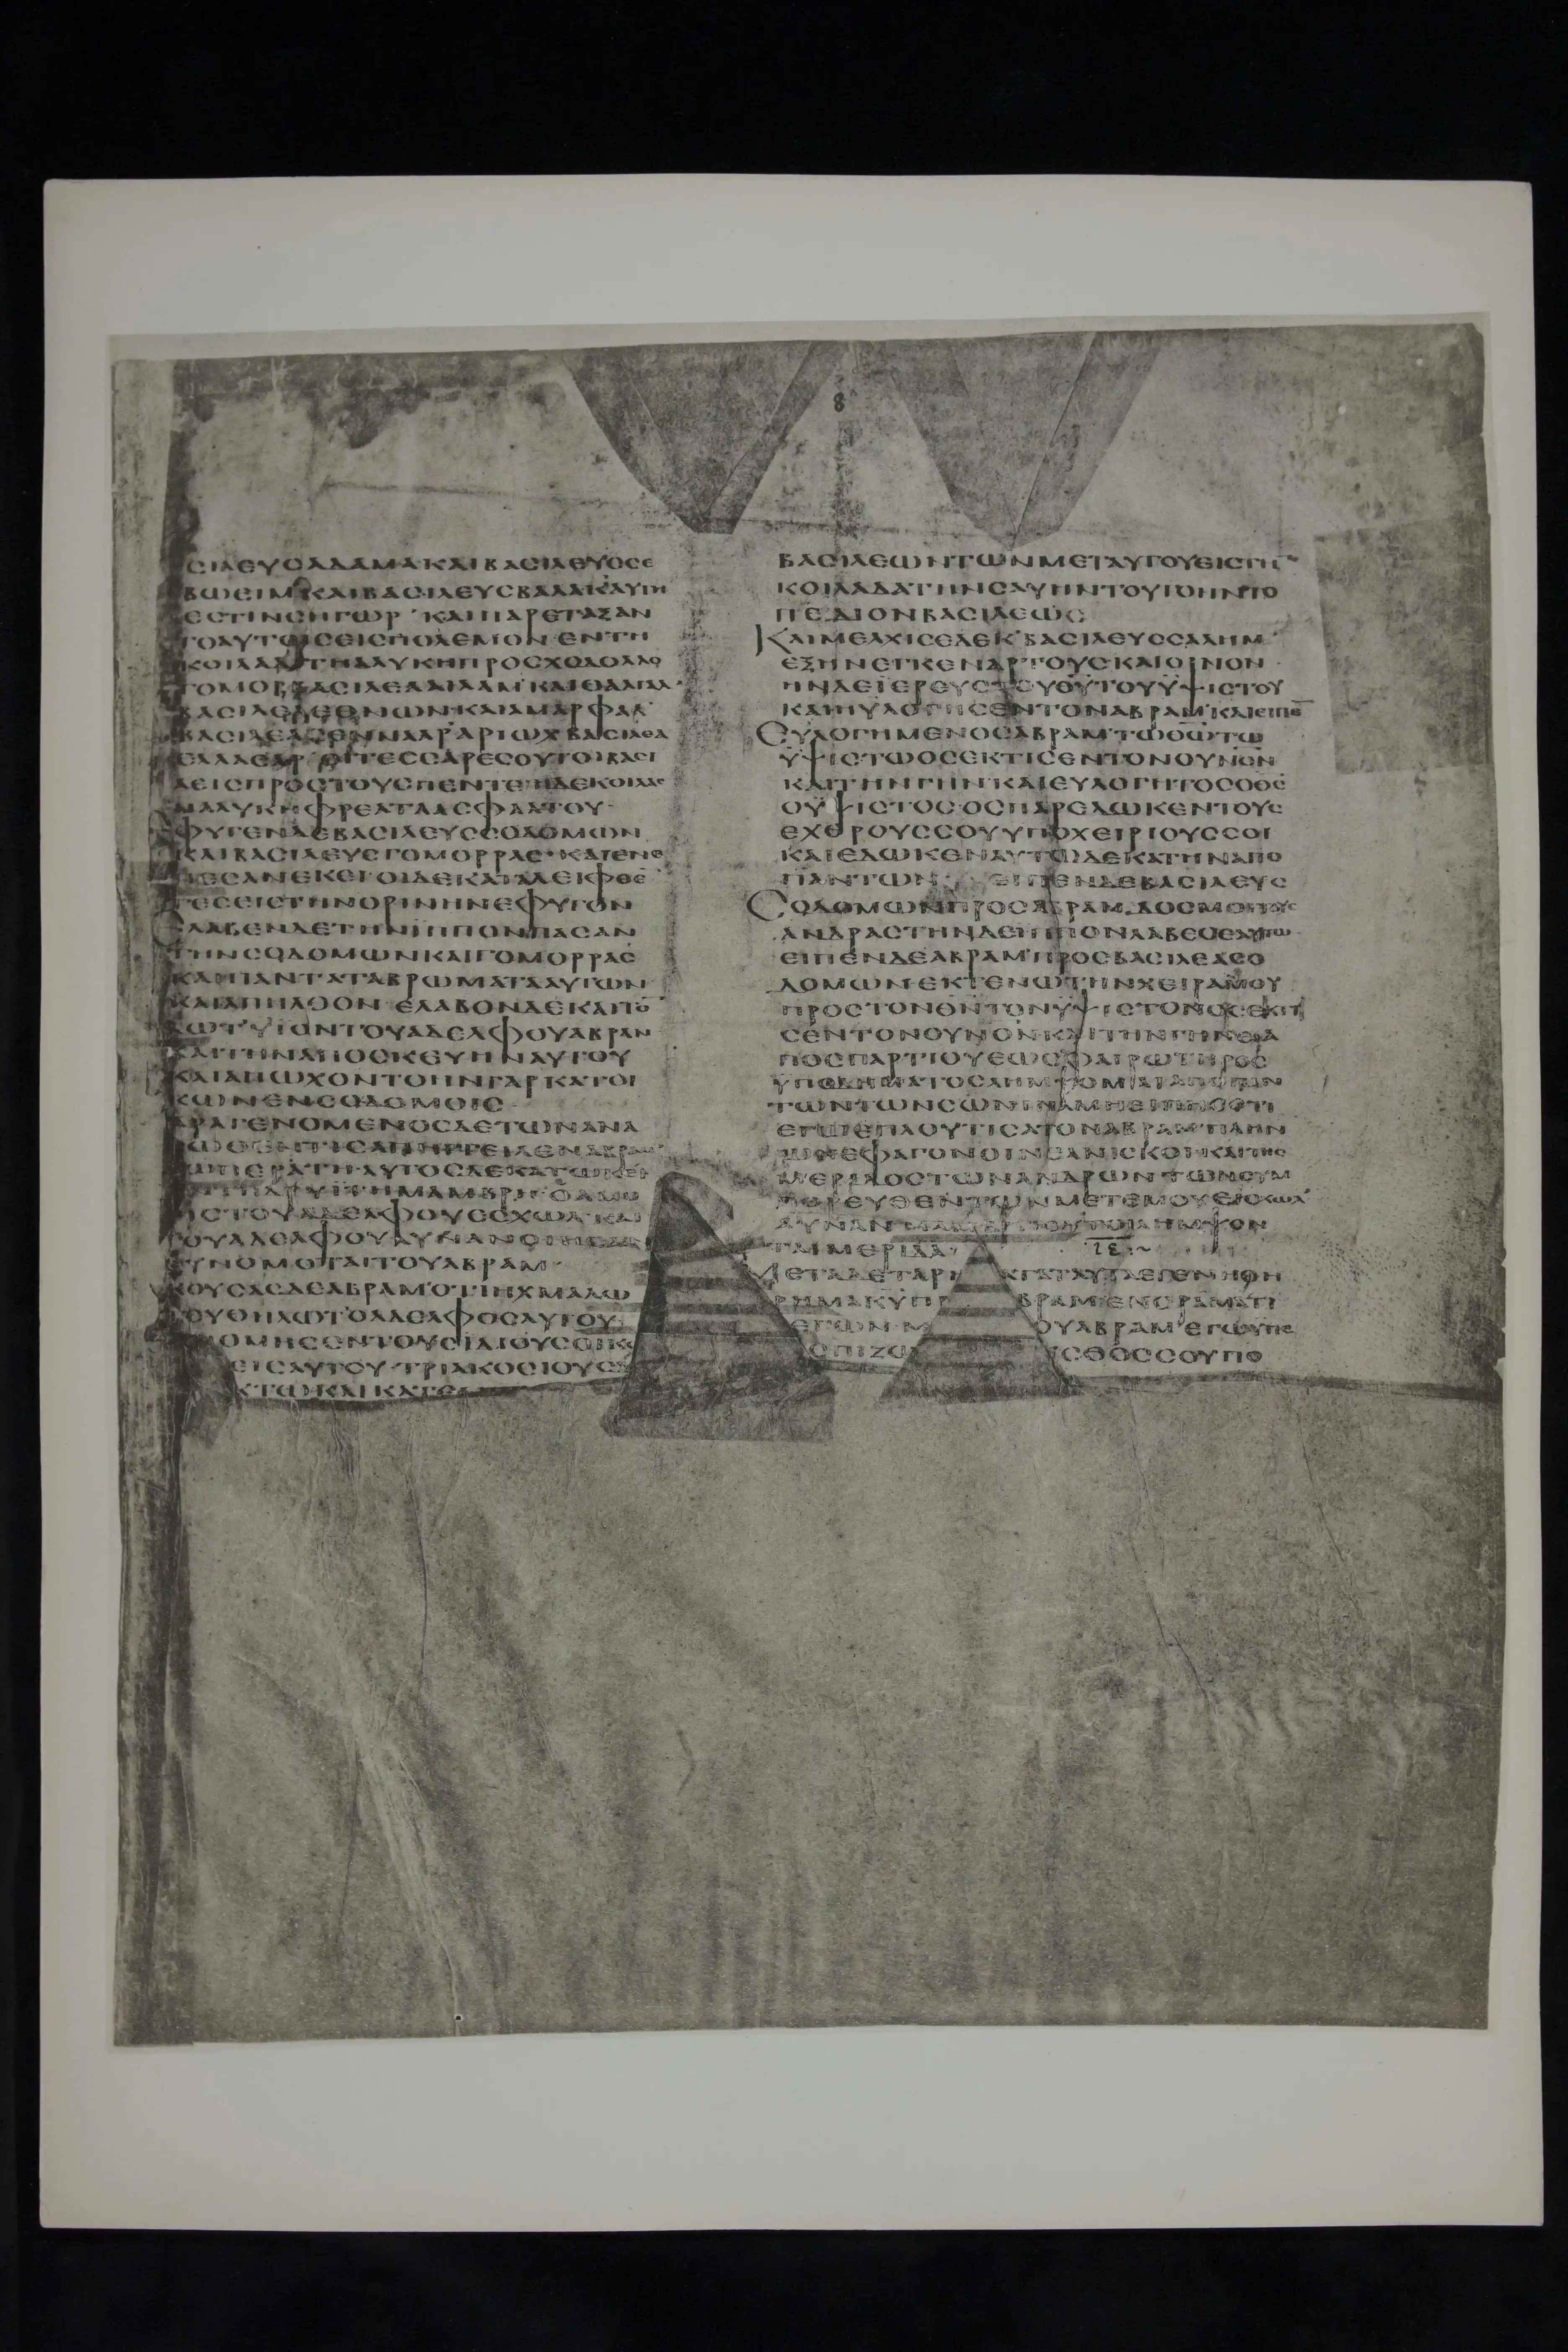 8
ϹΙΛΕΥϹΑΔΑΜΑΚΑΙΒΑϹΙΛΕΥϹϹΕ
ΒΩΕΙΜΚΑΙΒΑϹΙΛΕΥϹΒΑΛΑΚΑΥΤΗ
ΕϹΤΙΝϹΗΓΩΡ ΚΑΙΠΑΡΕΤΑΞΑΝ
ΤΟΑΥΤΟΙϹΕΙϹΠΟΛΕΜΟΝ ΕΝΤΗ
ΚΟΙΛΑΔΙΤΗΑΛΥΚΗΠΡΟϹΧΟΔΟΛΛΟ
ΓΟΜΟΡΒΑϹΙΛΕΑΑΙΛΑΜ ΚΑΙΘΑΛΓΑΛ
ΒΑϹΙΛΕΑΕΘΝΩΝΚΑΙΑΜΑΡΦΑΛ
ΒΑϹΙΛΕΑϹΕΝΝΑΑΡ ΑΡΙΩΧ ΒΑϹΙΛΕΑ
ΕΛΛΑϹΑΡ ΟΙΤΕϹϹΑΡΕϹΟΥΤΟΙΒΑϹΙ
ΛΕΙϹΠΡΟϹΤΟΥϹΠΕΝΤΕ ΗΔΕΚΟΙΛΑϹ
ΗΑΛΥΚΗΦΡΕΑΤΑΑϹΦΑΛΤΟΥ
ΦΥΓΕΝΔΕΒΑϹΙΛΕΥϹϹΟΔΟΜΩΝ
ΚΑΙΒΑϹΙΛΕΥϹΓΟΜΟΡΡΑϹ ΚΑΙΕΝΕ
ΠΕϹΑΝΕΚΕΙ ΟΙΔΕΚΑΤΑΛΕΙΦΘΕ
ΤΕϹΕΙϹΤΗΝΟΡΙΝΗΝΕΦΥΓΟΝ
ΕΛΑΒΕΝΔΕΤΗΝΙΠΠΟΝΠΑϹΑΝ
ΤΗΝϹΟΔΟΜΩΝΚΑΙΓΟΜΟΡΡΑϹ
ΚΑΙΠΑΝΤΑΤΑΒΡΩΜΑΤΑΑΥΤΩΝ
ΚΑΙΑΠΗΛΘΟΝ ΕΛΑΒΟΝΔΕΚΑΙΤΟ
ΛΩΤ ΥΙΟΝΤΟΥΑΔΕΛΦΟΥΑΒΡΑΜ
ΚΑΙΤΗΝΑΠΟϹΚΕΥΗΝΑΥΤΟΥ
ΚΑΙΑΠΩΧΟΝΤΟΗΝΓΑΡΚΑΤΟΙ
ΚΩΝΕΝϹΟΔΟΜΟΙϹ
ΠΑΡΑΓΕΝΟΜΕΝΟϹΔΕΤΩΝΑΝΑ
ϹΩΘΕΝΤΩΝΤΙϹΑΠΗΓΓΕΙΛΕΝΑΒΡΑΜ
ΤΩΠΕΡΑΤΗ ΑΥΤΟϹΔΕΚΑΤΩΚΕΙ
ΟΥΑΔΕΛΦΟΥΑΥΝΑΝ
ϹΥΝΟΜΟΤΑΙΤΟΥΑΒΡΑΜ
ΚΟΥϹΑϹΔΕΑΒΡΑΜ ΟΤΙΗΧΜΑΛΩ
ΤΕΥΘΗΛΩΤ ΟΑΔΕΛΦΟϹΑΥΤΟΥ
ΕΙϹΑΥΤΟΥ ΤΡΙΑΚΟϹΙΟΥϹ
ΚΤΩ ΚΑΙ ΚΑΤΕ
ΒΑϹΙΛΕΩΝΤΩΝΜΕΤΑΥΤΟΥΕΙϹΤΗ
ΚΟΙΛΑΔΑΤΗΝϹΑΥΗΝΤΟΥΤΟΗΝΤΟ
ΠΕΔΙΟΝΒΑϹΙΛΕΩϹ
ΚΑΙΜΕΛΧΙϹΕΔΕΚ ΒΑϹΙΛΕΥϹϹΑΛΗΜ
ΕΞΗΝΕΓΚΕΝΑΡΤΟΥϹΚΑΙΟΙΝΟΝ
ΗΝΔΕΪΕΡΕΥϹΤΟΥΘΥΤΟΥΫΨΙϹΤΟΥ
ΚΑΙΗΥΛΟΓΗϹΕΝΤΟΝΑΒΡΑΜ ΚΑΙΕΙΠΕ
ΕΥΛΟΓΗΜΕΝΟϹΑΒΡΑΜ ΤΩΘΩΤΩ
ΫΨΙϹΤΩΟϹΕΚΤΙϹΕΝΤΟΝΟΥΝΟΝ
ΚΑΙΤΗΝΓΗΝ ΚΑΙΕΥΛΟΓΗΤΟϹΟΘϹ
ΟΫΨΙϹΤΟϹ ΟϹΠΑΡΕΔΩΚΕΝΤΟΥϹ
ΕΧΘΡΟΥϹϹΟΥΥΠΟΧΕΙΡΙΟΥϹϹΟΙ
ΚΑΙΕΔΩΚΕΝΑΥΤΩΔΕΚΑΤΗΝΑΠΟ
ΠΑΝΤΩΝ ΕΙΠΕΝΔΕΒΑϹΙΛΕΥϹ
ϹΟΔΟΜΩΝΠΡΟϹΑΒΡΑΜ ΔΟϹΜΟΙΤΟΥϹ
ΑΝΔΡΑϹΤΗΝΔΕΙΠΠΟΝΛΑΒΕϹΕΑΥΤΩ
ΕΙΠΕΝΔΕΑΒΡΑΜ ΠΡΟϹΒΑϹΙΛΕΑϹΟ
ΔΟΜΩΝ ΕΚΤΕΝΩΤΗΝΧΕΙΡΑΜΟΥ
ΠΡΟϹΤΟΝΘΝΤΟΝΫΨΙϹΤΟΝΟϹΕΚΤΙ
ϹΕΝΤΟΝΟΥΝΟΝΚΑΙΤΗΝΓΗΝΕΙΑ
ΠΟϹΠΑΡΤΙΟΥΕΩϹϹΦΑΙΡΩΤΗΡΟϹ
ΥΠΟΔΗΜΑΤΟϹΛΗΜΨΟΜΑΙΑΠΟΠΑΝ
ΤΩΝΤΩΝϹΩΝΙΝΑΜΗΕΙΠΗϹΟΤΙ
ΕΓΩΕΠΛΟΥΤΙϹΑΤΟΝΑΒΡΑΜ ΠΛΗΝ
ΩΝΕΦΑΓΟΝΟΙΝΕΑΝΙϹΚΟΙΚΑΙΤΗϹ
ΜΕΡΙΔΟϹΤΩΝΑΝΔΡΩΝΤΩΝϹΥΜ
ΠΟΡΕΥΘΕΝΤΩΝΜΕΤΕΜΟΥΕϹΧΩΛ
ΤΑΙΜΕΡΙΔΑ
ΙΕ
ΜΕΤΑΔΕΤΑΡΗ ΑΤΑΤΑΥΤΑΕΓΕΝΗΘΗ
ΡΗΜΑΚΥΠΡ ΒΡΑΜΕΝΟΡΑΜΑΤΙ
ΛΕΓΩΝ Μ ΟΥΑΒΡΑΜ ΕΓΩΥΠΕ
ϹΠΙΖΩ ΙϹΘΟϹϹΟΥΠΟ